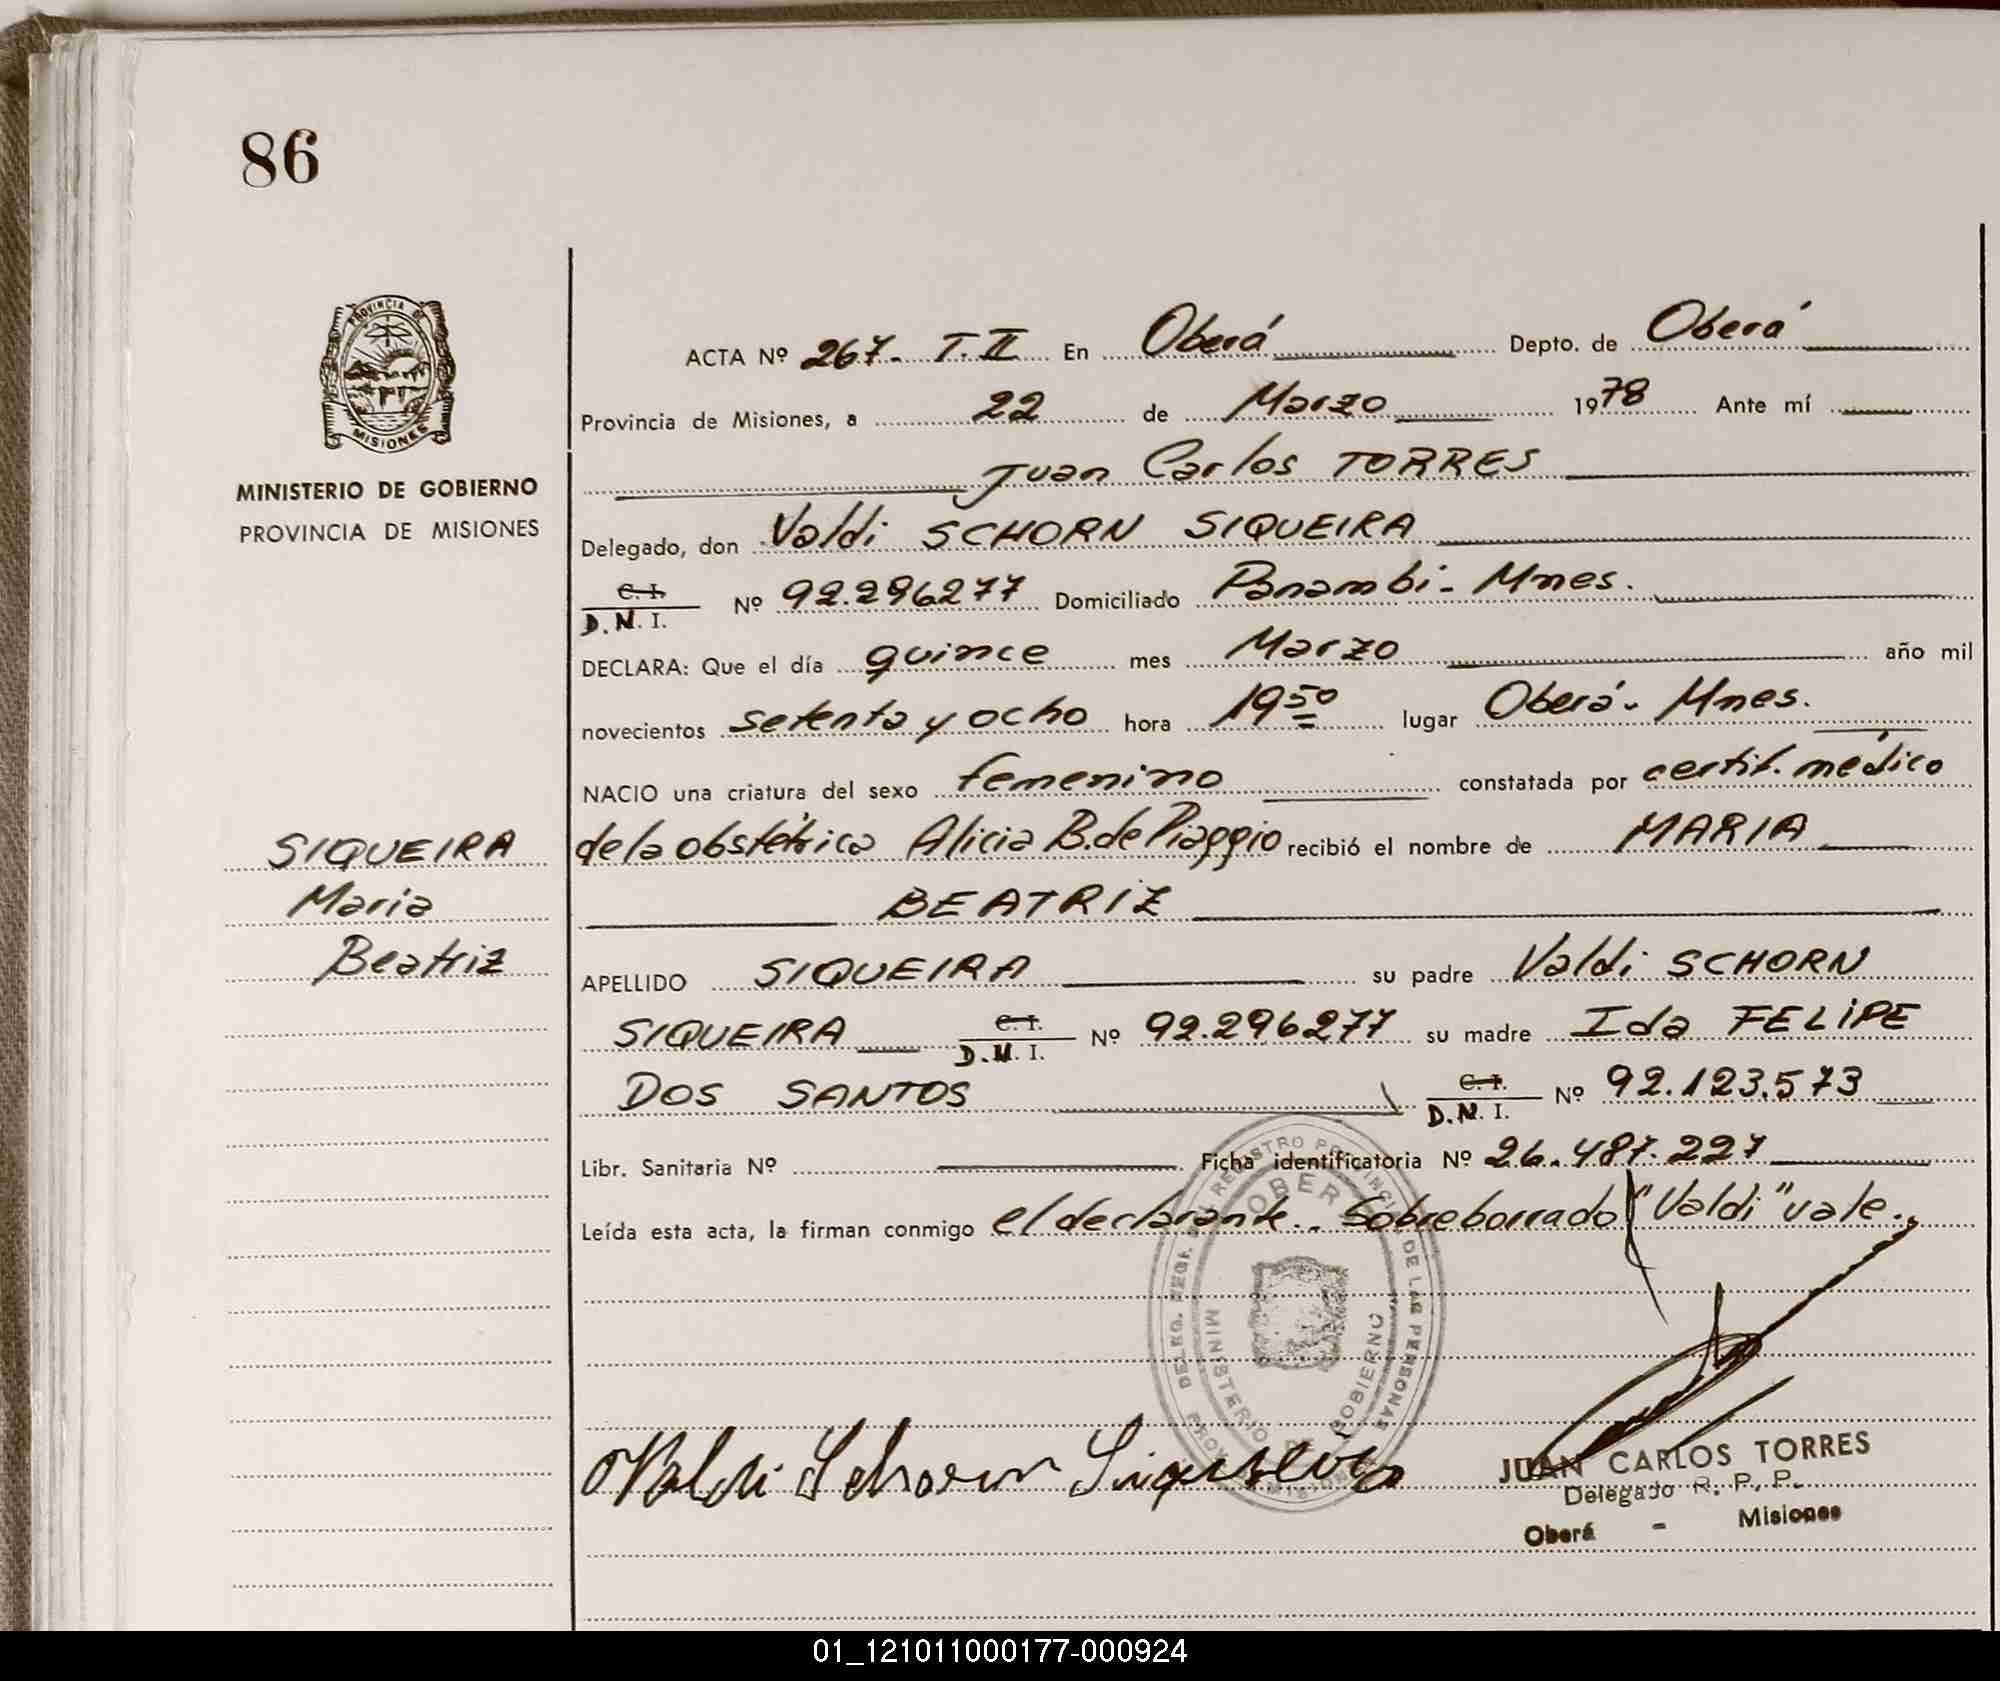 86
PROVINCIA DE
MISIONES
MINISTERIO DE GOBIERNO
PROVINCIA DE MISIONES
ACTA Nº 267- T.II En Oberá Depto. de Oberá
Provincia de Misiones, a 22 de Marzo 1978 Ante mí
Juan Carlos TORRES
Delegado, don Valdi SCHORN SIQUEIRA
C. I.
D.N.I. Nº 92.296277 Domiciliado Panambi- Mnes.
DECLARA: Que el día quince mes Marzo año mil
novecientos setenta y ocho hora 19 50 lugar Oberá- Mnes.
NACIO una criatura del sexo femenino constatada por certif. médico
de la obstétrica Alicia B. de Piaggio recibió el nombre de MARIA
BEATRIZ
SIQUEIRA
Maria
Beatriz
APELLIDO SIQUEIRA su padre Valdi SCHORN
SIQUEIRA C. I.
D.N.I. Nº 92.296277 su madre Ida FELIPE
DOS SANTOS C. I.
D.N.I. Nº 92.123.573
Libr. Sanitaria Nº Ficha identificatoria Nº 26.487.227
Leída esta acta, la firman conmigo el declarante.. Sobreborrado "Valdi" vale.
DELEG. REGI. DEL REGISTRO PROVINCIAL DE LAS PERSONAS
OBERA
MINISTERIO DE GOBIERNO
PROV. MISIONES
Valdi Schorn Siqueira
JUAN CARLOS TORRES
Delegado R. P. P.
Oberá - Misiones
01_121011000177-000924